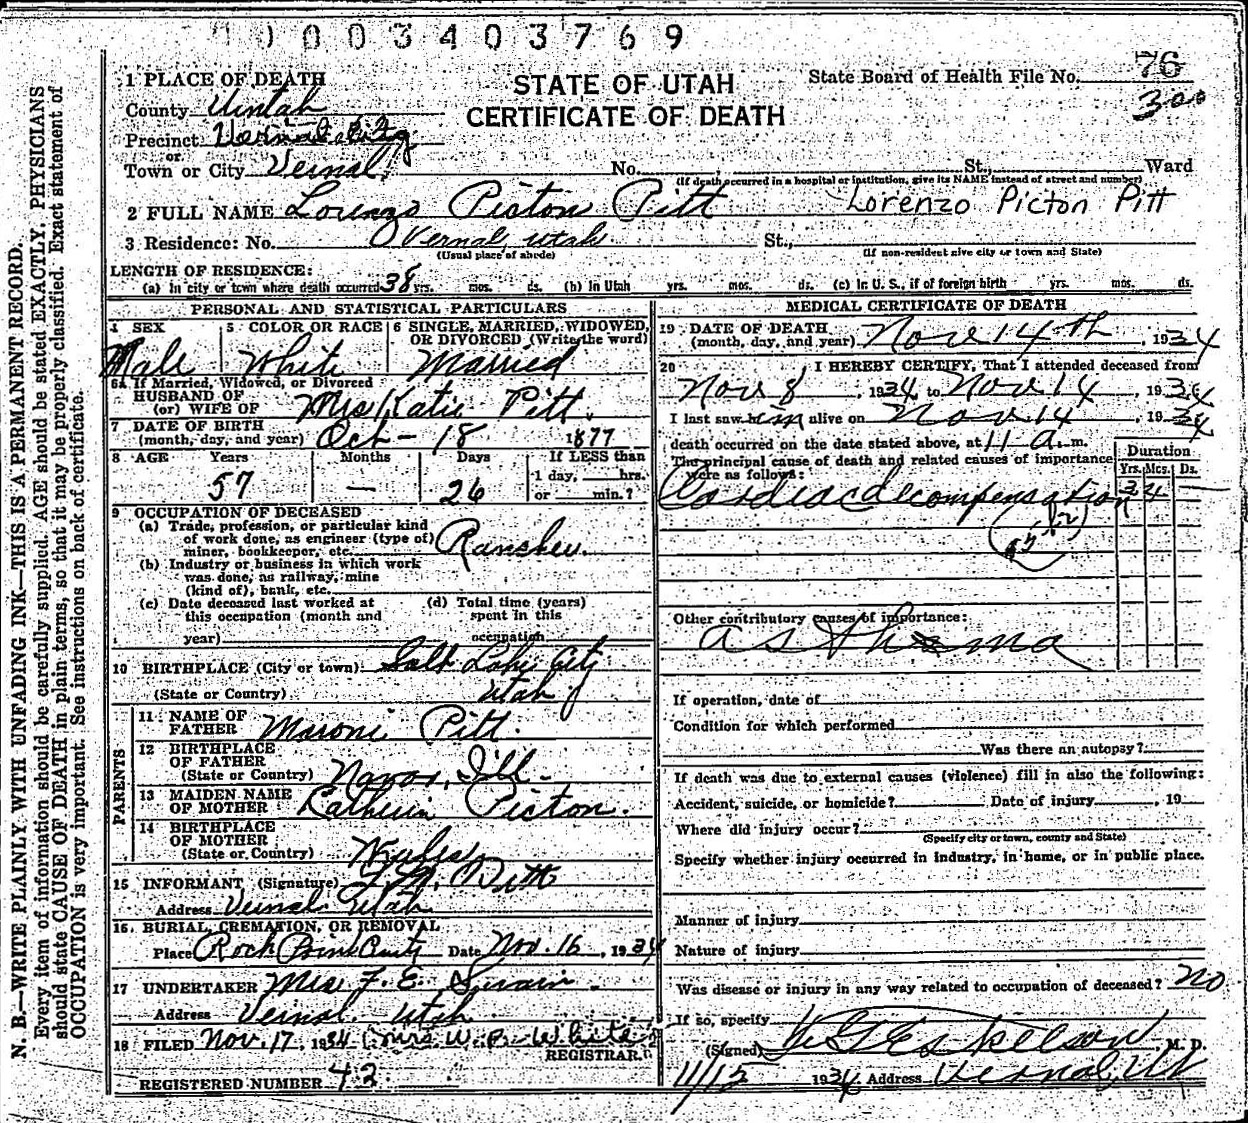 0003403769
1 PLACE OF DEATH
STATE OF UTAH
CERTIFICATE OF DEATH
State Board of Health File No. 76
300
County Uintah
Precinct Vernal City
or
Town or City Vernal, No. St., Ward
(If death occurred in a hospital or institution, give its NAME instead of street and number)
2 FULL NAME Lorenzo Picton Pitt Lorenzo Picton Pitt
3 Residence: No. Vernal, Utah. St.,
(Usual place of abode) (If non-resident give city or town and State)
LENGTH OF RESIDENCE:
(a) In city or town where death occurred 38 yrs. mos. ds. (b) In Utah yrs. mos. ds. (c) In U. S., if of foreign birth yrs. mos. ds.
PERSONAL AND STATISTICAL PARTICULARS
4 SEX 5 COLOR OR RACE 6 SINGLE, MARRIED, WIDOWED, OR DIVORCED (Write the word)
Male White Married
6A If Married, Widowed, or Divorced
HUSBAND OF
(or) WIFE OF Mrs Katie Pitt.
7 DATE OF BIRTH
(month, day, and year) Oct - 18 1877
8 AGE Years Months Days If LESS than
57 — 26 1 day, hrs.
or min.?
9 OCCUPATION OF DECEASED
(a) Trade, profession, or particular kind
of work done, as engineer (type of)
miner, bookkeeper, etc. Rancher.
(b) Industry or business in which work
was done, as railway, mine
(kind of), bank, etc.
(c) Date deceased last worked at (d) Total time (years)
this occupation (month and spent in this
year) occupation
10 BIRTHPLACE (City or town) Salt Lake City
(State or Country) Utah
PARENTS
11 NAME OF
FATHER Maroni Pitt.
12 BIRTHPLACE
OF FATHER
(State or Country) Ill.
13 MAIDEN NAME
OF MOTHER Picton.
14 BIRTHPLACE
OF MOTHER
(State or Country) Wales
15 INFORMANT (Signature) Pitt
Address Vernal Utah
16. BURIAL, CREMATION, OR REMOVAL
Place Rock Date Nov. 16, 1934
17 UNDERTAKER Mrs. F. E. Swain.
Address Vernal Utah
18 FILED Nov. 17, 1934 Mrs. W. P. White
REGISTRAR.
REGISTERED NUMBER 42
MEDICAL CERTIFICATE OF DEATH
19 DATE OF DEATH
(month, day, and year) Nov 14th, 1934
20 I HEREBY CERTIFY, That I attended deceased from
Nov 8, 1934 to Nov 14, 1934
I last saw him alive on Nov 14, 1934
death occurred on the date stated above, at 11 a. m.
The principal cause of death and related causes of importance
were as follows: Duration
Yrs. Mcs. Ds.
Cardiac decompensation
Other contributory causes of importance:
asthma
If operation, date of
Condition for which performed
Was there an autopsy?
If death was due to external causes (violence) fill in also the following:
Accident, suicide, or homicide? Date of injury , 19
Where did injury occur?
(Specify city or town, county and State)
Specify whether injury occurred in industry, in home, or in public place.
Manner of injury
Nature of injury
Was disease or injury in any way related to occupation of deceased? no
If so, specify
(Signed) Eskelson M. D.
11/15 1934 Address Vernal, Ut
N. B.—WRITE PLAINLY, WITH UNFADING INK—THIS IS A PERMANENT RECORD.
Every item of information should be carefully supplied. AGE should be stated EXACTLY. PHYSICIANS
should state CAUSE OF DEATH in plain terms, so that it may be properly classified. Exact statement of
OCCUPATION is very important. See instructions on back of certificate.